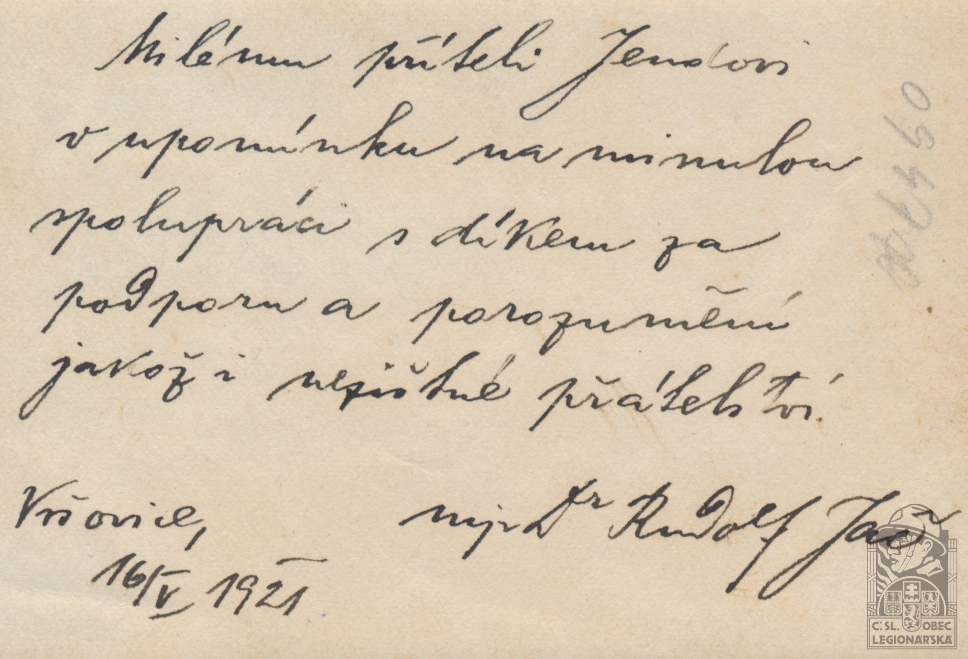 Milému příteli Jendovi
v upomínku na minulou
spolupráci s díkem za
podporu a porozumění
jakož i nezištné přátelství.
Vršovice,
16/V 1921
mjr Dr Rudolf
Č. SL. OBEC
LEGIONÁŘSKÁ